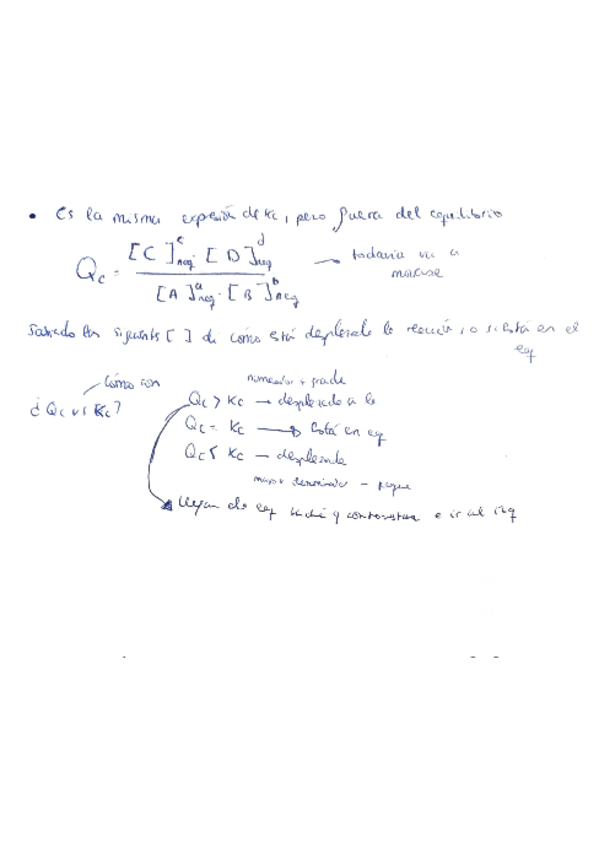 • Es la misma expresión de Kc, pero fuera del equilibrio
Qc = [C]^c neq · [D]^d neq / [A]^a neq · [B]^b neq → todavía va a moverse
Sabiendo las siguients [ ] di cómo está desplazado la reacción, o si está en el eq
¿Qc vs Kc? cómo son
numerador + grande
Qc > Kc → desplazado a la
Qc = Kc → Está en eq
Qc < Kc → desplazada
mayor denominador - 
de eq y e ir al izq